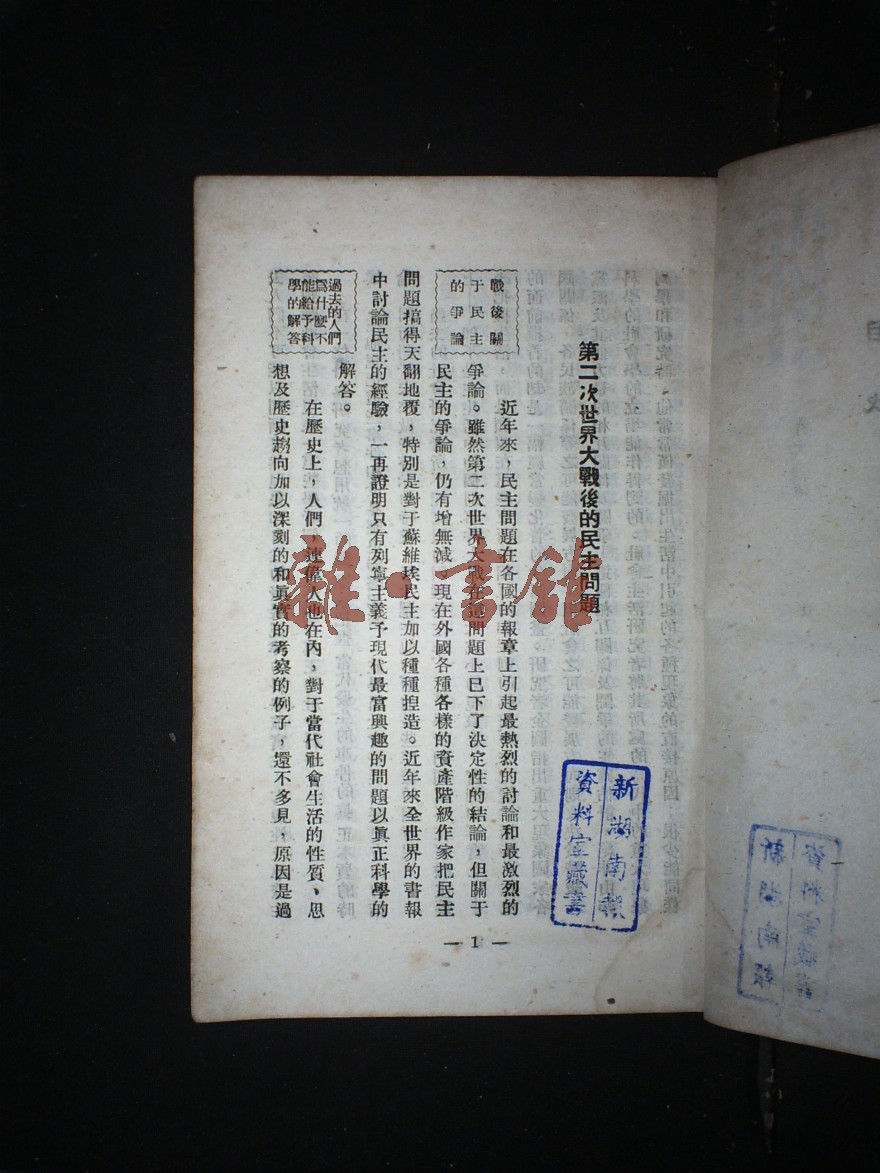 第二次世界大戰後的民主問題
戰後關
于民主
的爭論
近年來，民主問題在各國的報章上引起最熱烈的討論和最激烈的
爭論。雖然第二次世界大戰在這問題上已下了決定性的結論，但關于
民主的爭論，仍有增無減。現在外國各種各樣的資產階級作家把民主
問題搞得天翻地覆，特別是對于蘇維埃民主加以種種揑造。近年來全世界的書報
中討論民主的經驗，一再證明只有列寧主義予現代最富興趣的問題以眞正科學的
解答。
過去的人們
爲什麼不
能給予科
學的解答
在歷史上，人們，連偉人也在內，對于當代社會生活的性質、思
想及歷史趨向加以深刻的和眞實的考察的例子，還不多見，原因是過
— 1 —
新湖南報
資料室藏書
雜·書館
目
次